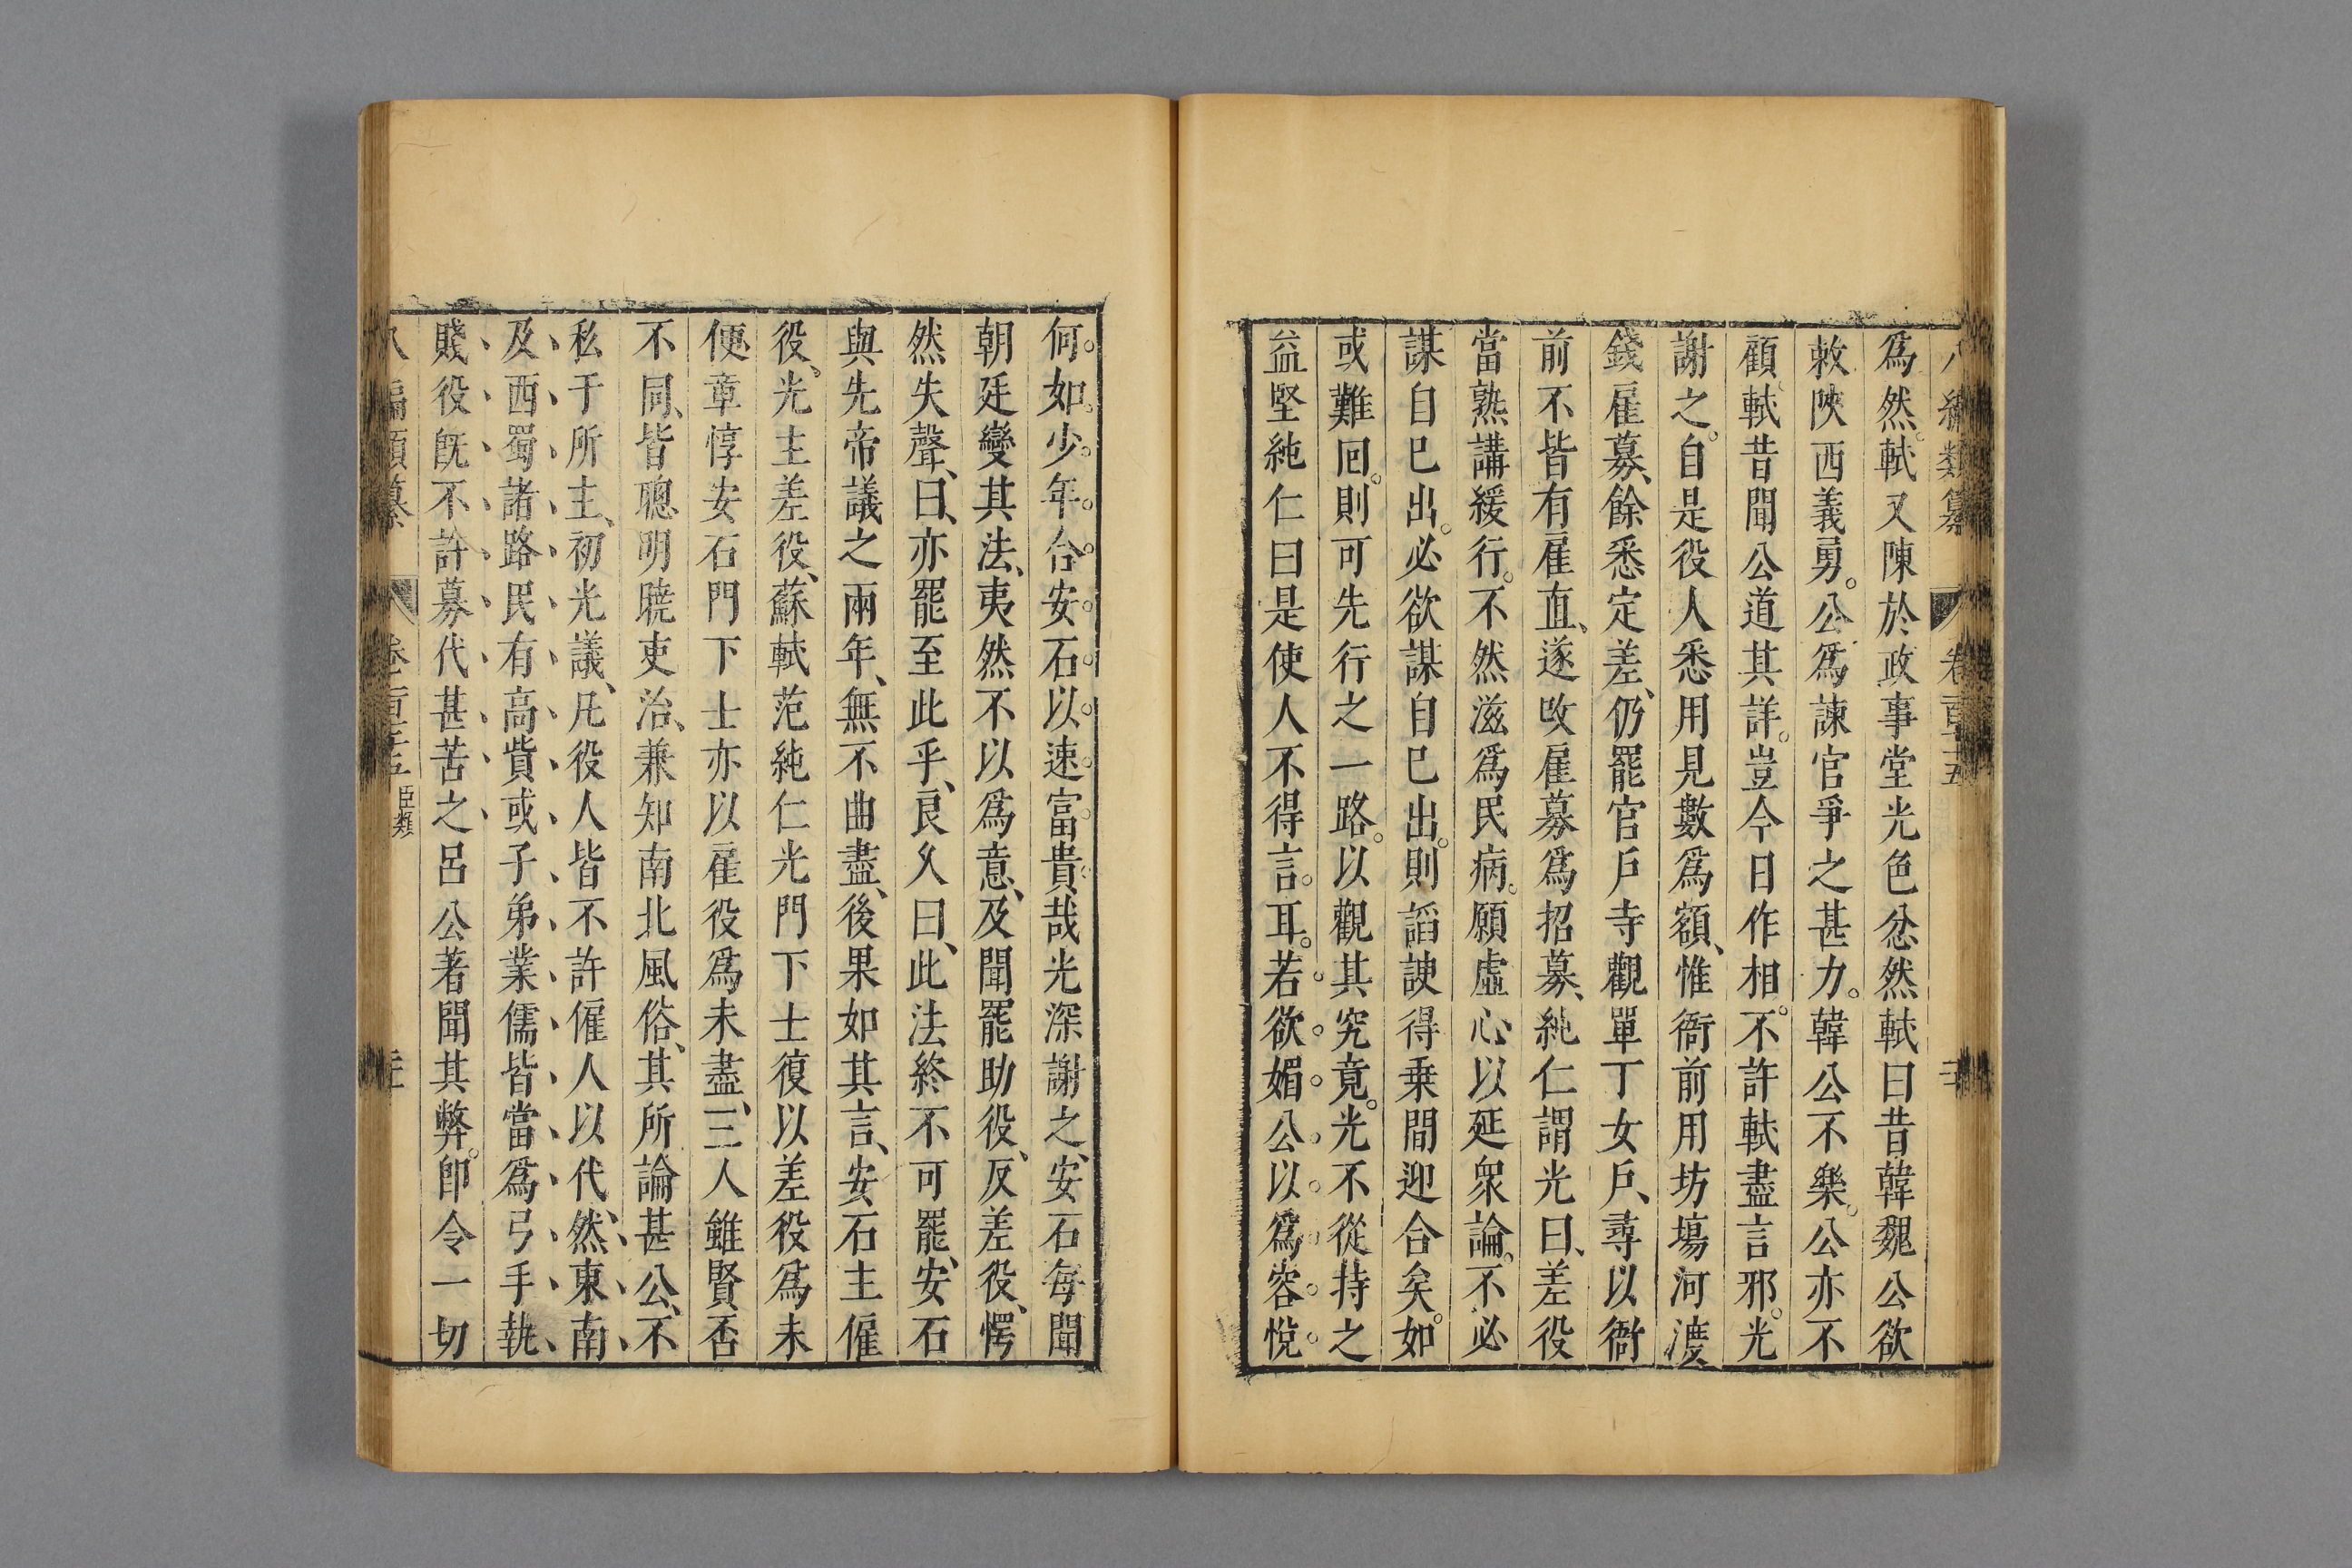 八編類纂 卷百三十五
爲然。軾又陳於政事堂光色忿然軾曰昔韓魏公欲
敕陝西義勇。公爲諫官爭之甚力。韓公不樂。公亦不
顧軾昔聞公道其詳。豈今日作相。不許軾盡言邪。光
謝之。自是役人悉用見數爲額、惟衙前用坊塲河渡
錢雇募、餘悉定差、仍罷官戶寺觀單丁女戶、尋以衙
前不皆有雇直、遂攺雇募爲招募、純仁謂光曰、差役
當熟講緩行。不然滋爲民病。願虛心以延衆論。不必
謀自巳出。必欲謀自巳出。則謟諛得乗間迎合矣。如
或難囘。則可先行之一路。以觀其究竟。光不從持之
益堅純仁曰是使人不得言。耳。若欲媚公以爲容悅
何如少年合安石以速富貴哉光深謝之、安石每聞
朝廷變其法、夷然不以爲意、及聞罷助役、反差役、愕
然失聲、曰、亦罷至此乎、良久曰、此法終不可罷、安石
與先帝議之兩年、無不曲盡、後果如其言、安石主僱
役、光主差役、蘇軾范純仁光門下士復以差役爲未
便章惇安石門下士亦以雇役爲未盡、三人雖賢否
不同、皆聰明曉吏治、兼知南北風俗、其所論甚公、不
私于所主、初光議、凡役人皆不許僱人以代、然、東南
及西蜀諸路民有高貲或子弟業儒皆當爲弓手執
賤役旣不許募代甚苦之呂公著聞其弊。卽令一切
八編類纂 卷百三十五 臣類